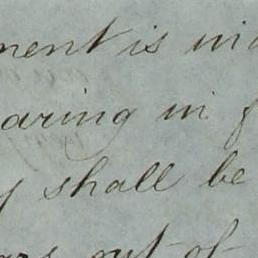 ment is
aring in
y shall be
out of